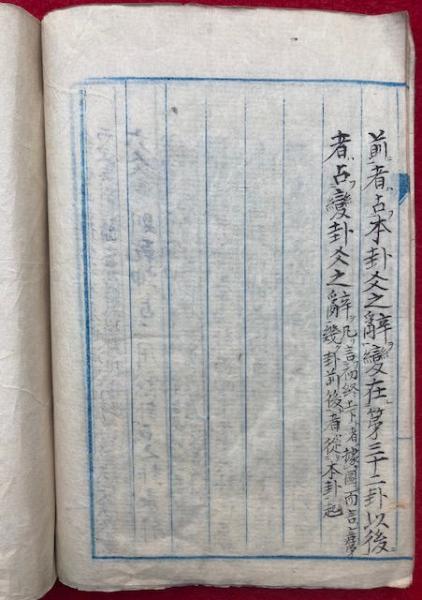 前者占本卦爻之辭變在第三十二卦以後
者占變卦爻之辭
凡言初終上下者據圖而言言第
幾卦前後者從本卦起